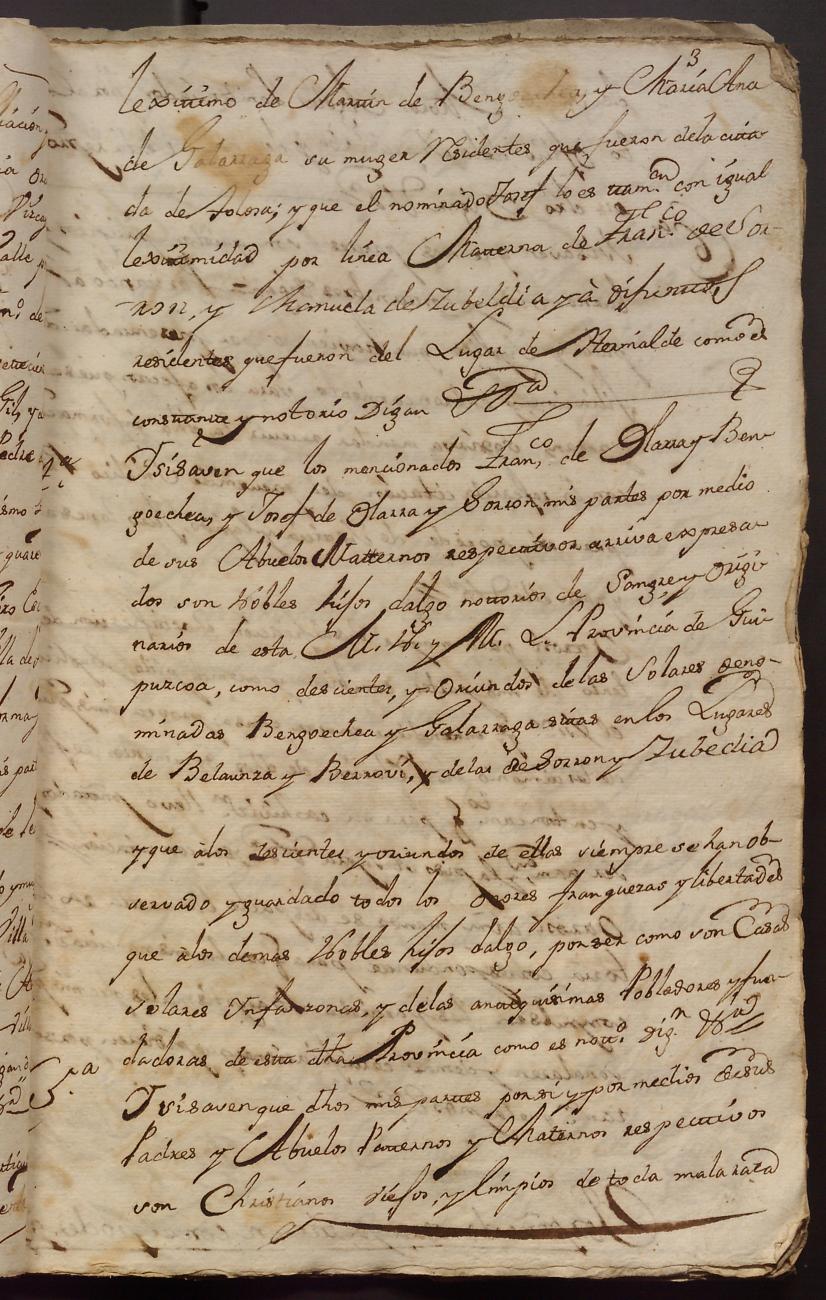 3
lexitimo de Martin de Bengoechea, y Maria Ana
de Galarraga su muger Residentes que fueron dela ciuda
da de Tolosa; y que el nominado Josef lo es tam.en con igual
lexitimidad por linea Matterna de Fran.co de Sor-
ron, y Manuela de Zubeldia ya difuntos
residentes que fueron del Lugar de Hernialde como es
constante y notorio Digan
4.a
Y si saven que los mencionados Fran.co de Olarra y Ben-
goechea, y Josef de Olarra y Sorron mis partes por medio
de sus Abuelos Matternos respectivos arriva expresa-
dos son Nobles hijos dalgo nottorios de Sangre y Origi-
narios de esta M. N. y M. L. Provincia de Gui-
puzcoa, como descientes, y Oriundos de las Solares deno-
minadas Bengoechea y Galarraga sitas en los Lugares
de Belaunza y Berrovi, y delas de Sorron y Zubeldia
y que àlos descientes y oriundos de ellas siempre se han ob-
servado y guardado todos los onores franquezas y libertades
que àlos demas Nobles hijos dalgo, por ser como son Casas
solares Infanzonas, y delas antiquísimas Pobladores y fun-
dadoras de esta dha Provincia como es nott.o Dig.n
5.a
Y si saven que dhos mis partes por sí y por medios de sus
Padres y Abuelos Patternos y Maternos respectivos
son Christianos viejos, y limpios de toda mala raza